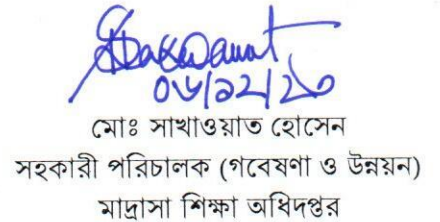 Sakhawat
০৬/১২/২৩
মোঃ সাখাওয়াত হোসেন
সহকারী পরিচালক (গবেষণা ও উন্নয়ন)
মাদ্রাসা শিক্ষা অধিদপ্তর